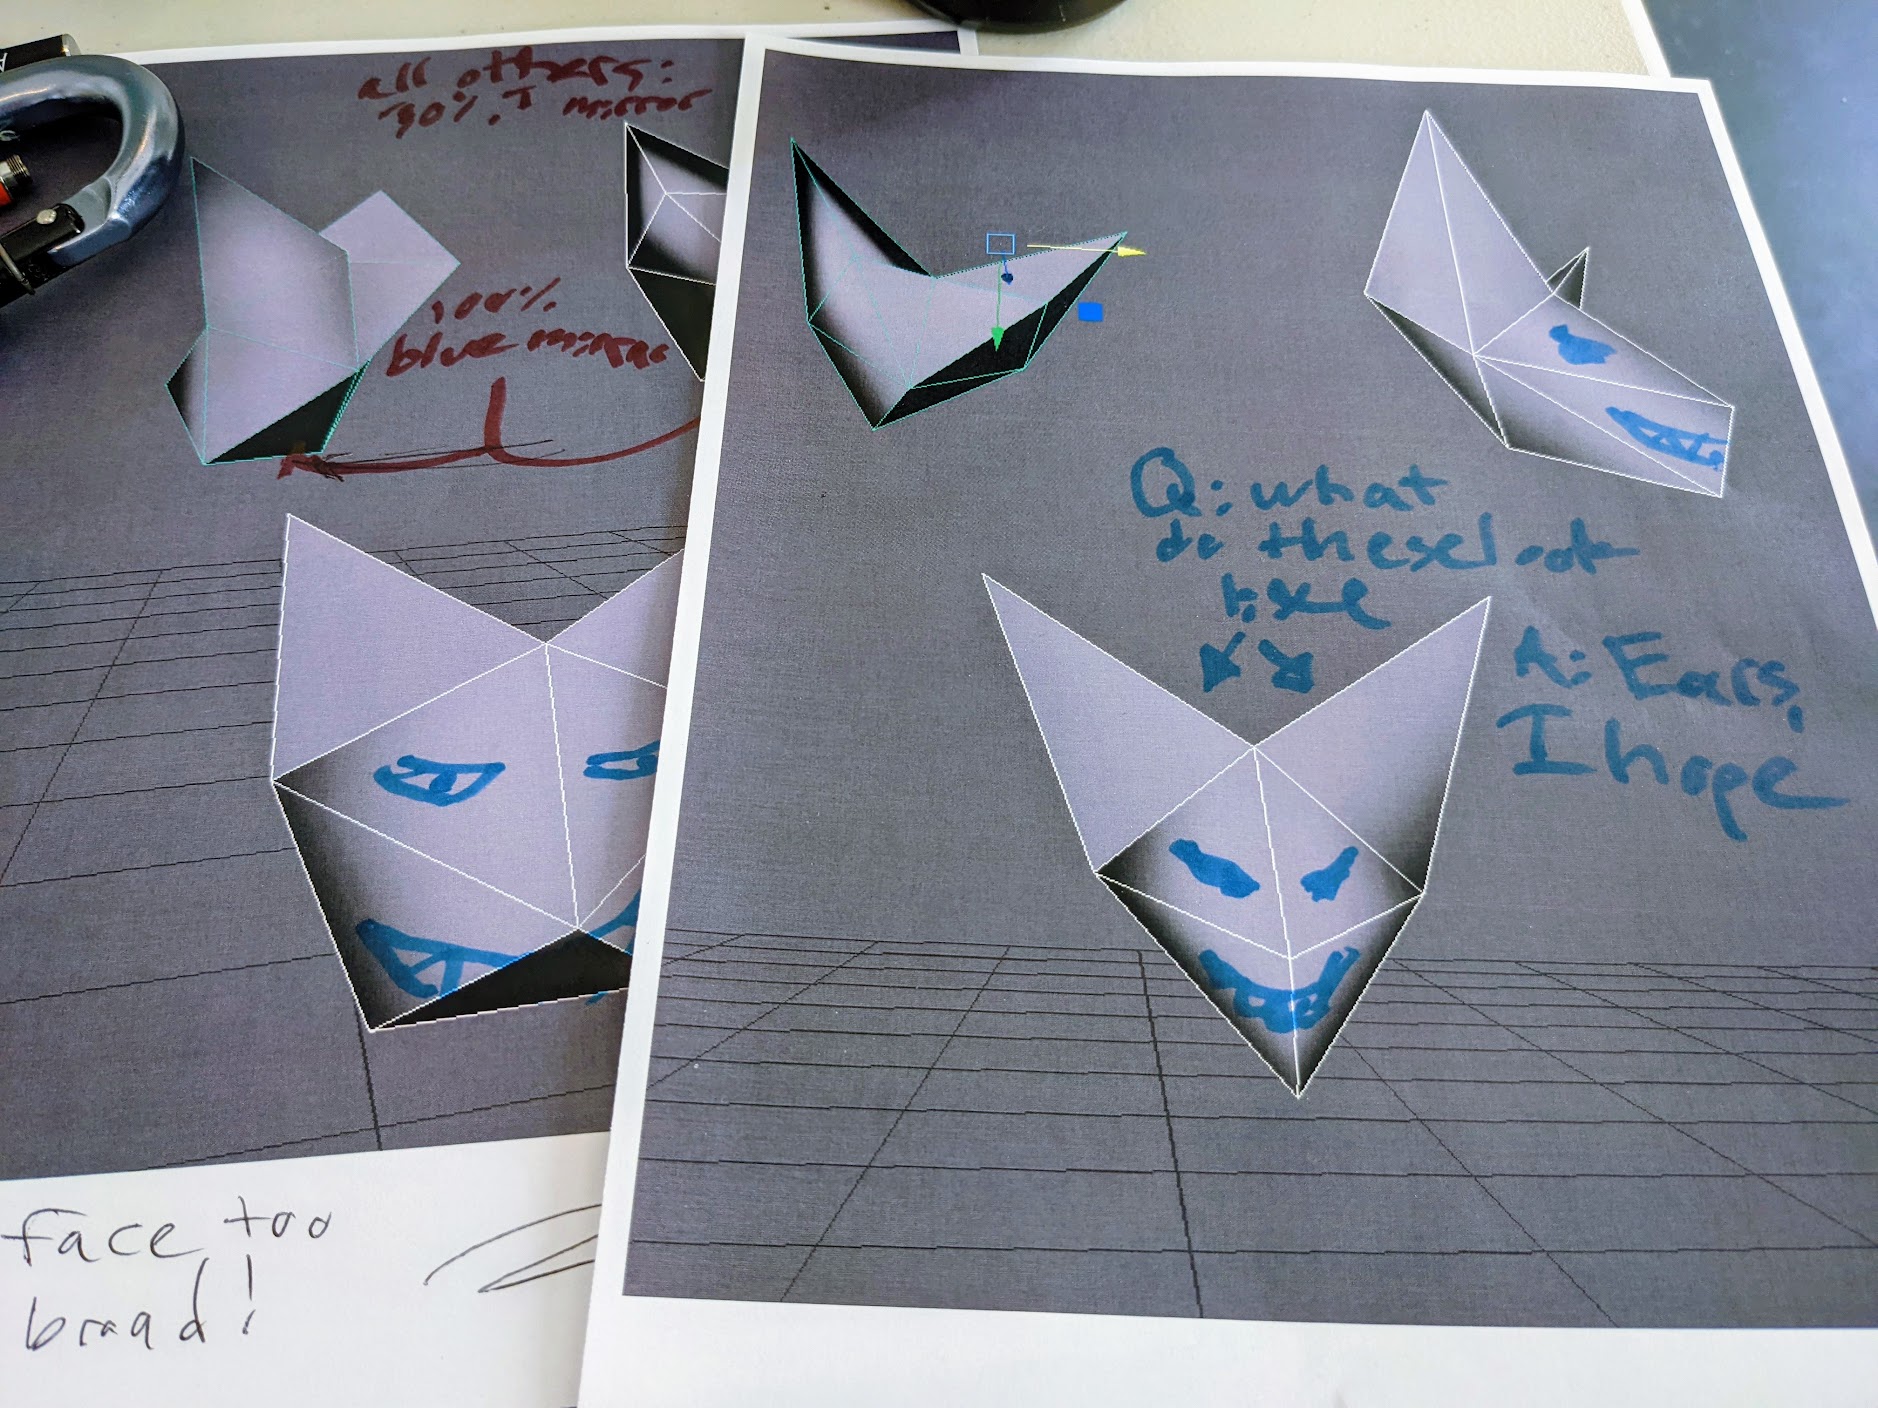 all others:
30% T mirror
100%
blue mirror
face too
broad!
Q: what
do these look
like
A: Ears,
I hope